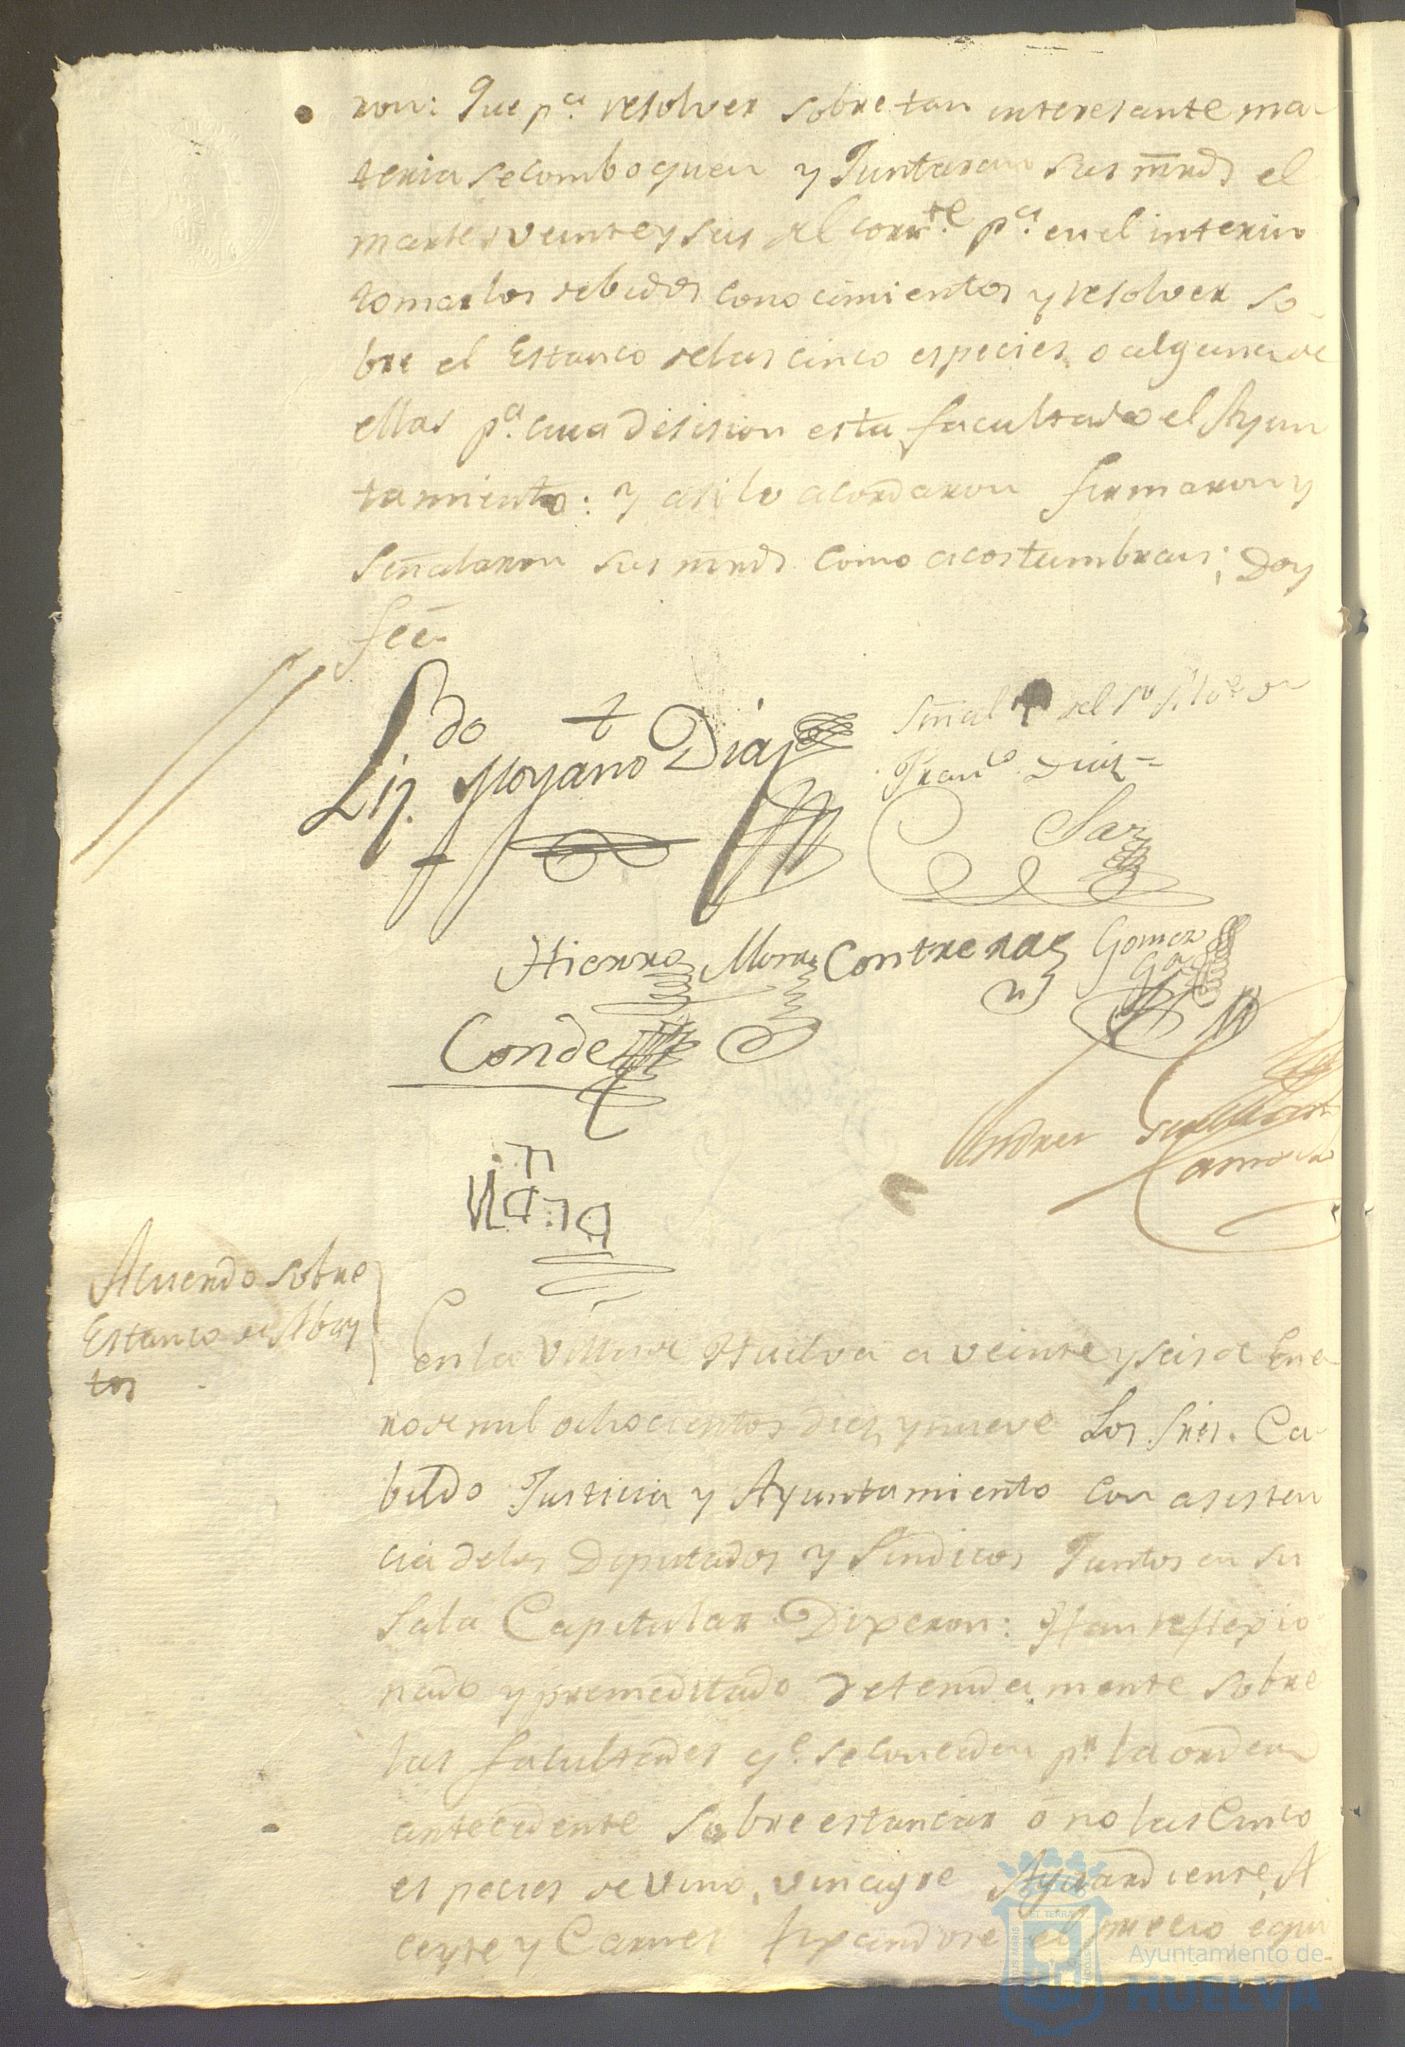 ron: Que pª. resolver sobre tan interesante ma-
teria se comboquen y Juntaran sus mrds el
martes veinte y seis del corrte. pª. en el interin
tomar los debidos conocimientos y resolver so-
bre el Estanco de las cinco especies o alguna de
ellas pª. cua desision esta facultado el Ayun
tamiento: y asi lo acordaron firmaron y
señalaron sus mrds como acostumbran; Doy
feé
Lizdo. Moyano Diaz
Señal del
Franco. Diaz
Saz
Hierro Mora Contreras Gomez
Conde
Viana
Andres
Acuerdo sobre
Estanco de Abas
tos
En la Villa de Huelva a veinte y seis de Ene
ro de mil ochocientos diez y nueve Los Sres. Ca-
bildo Justicia y Ayuntamiento con asisten
cia de los Diputados y Sindicos Juntos en su
Sala Capitular Dixeron: Han reflexio
nado y premeditado detenidamente sobre
las facultades qe. se conceden pr. la orden
antecedente sobre estancar o no las Cinco
especies de vino, vinagre Aguardiente, A
ceyte y Carnes fixandose el precio equi
Ayuntamiento de
HUELVA